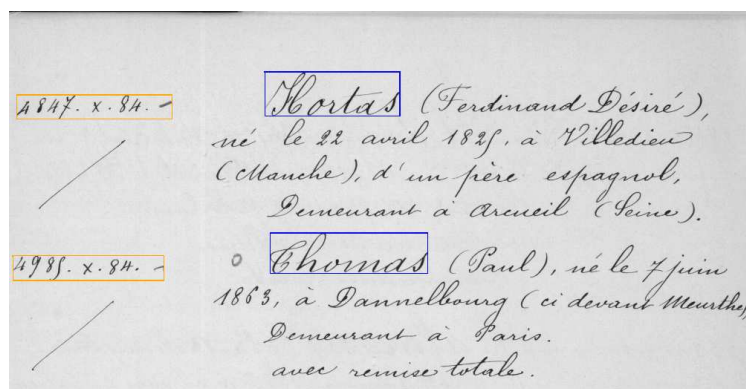 4847. x. 84. - Hortas (Ferdinand Désiré),
né le 22 avril 1825, à Villedieu
(Manche), d'un père espagnol,
Demeurant à Arcueil (Seine).
4985. x. 84. - Thomas (Paul), né le 7 juin
1863, à Dannelbourg (ci devant Meurthe),
Demeurant à Paris.
avec remise totale.